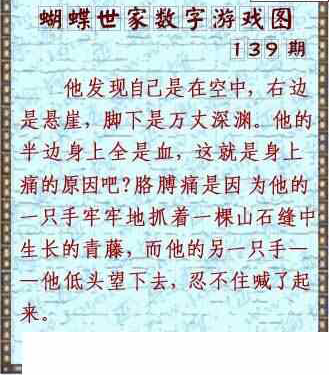 蝴蝶世家数字游戏图
139期
他发现自己是在空中，右边
是悬崖，脚下是万丈深渊。他的
半边身上全是血，这就是身上
痛的原因吧?胳膊痛是因 为他的
一只手牢牢地抓着一棵山石缝中
生长的青藤，而他的另一只手—
—他低头望下去，忍不住喊了起
来。